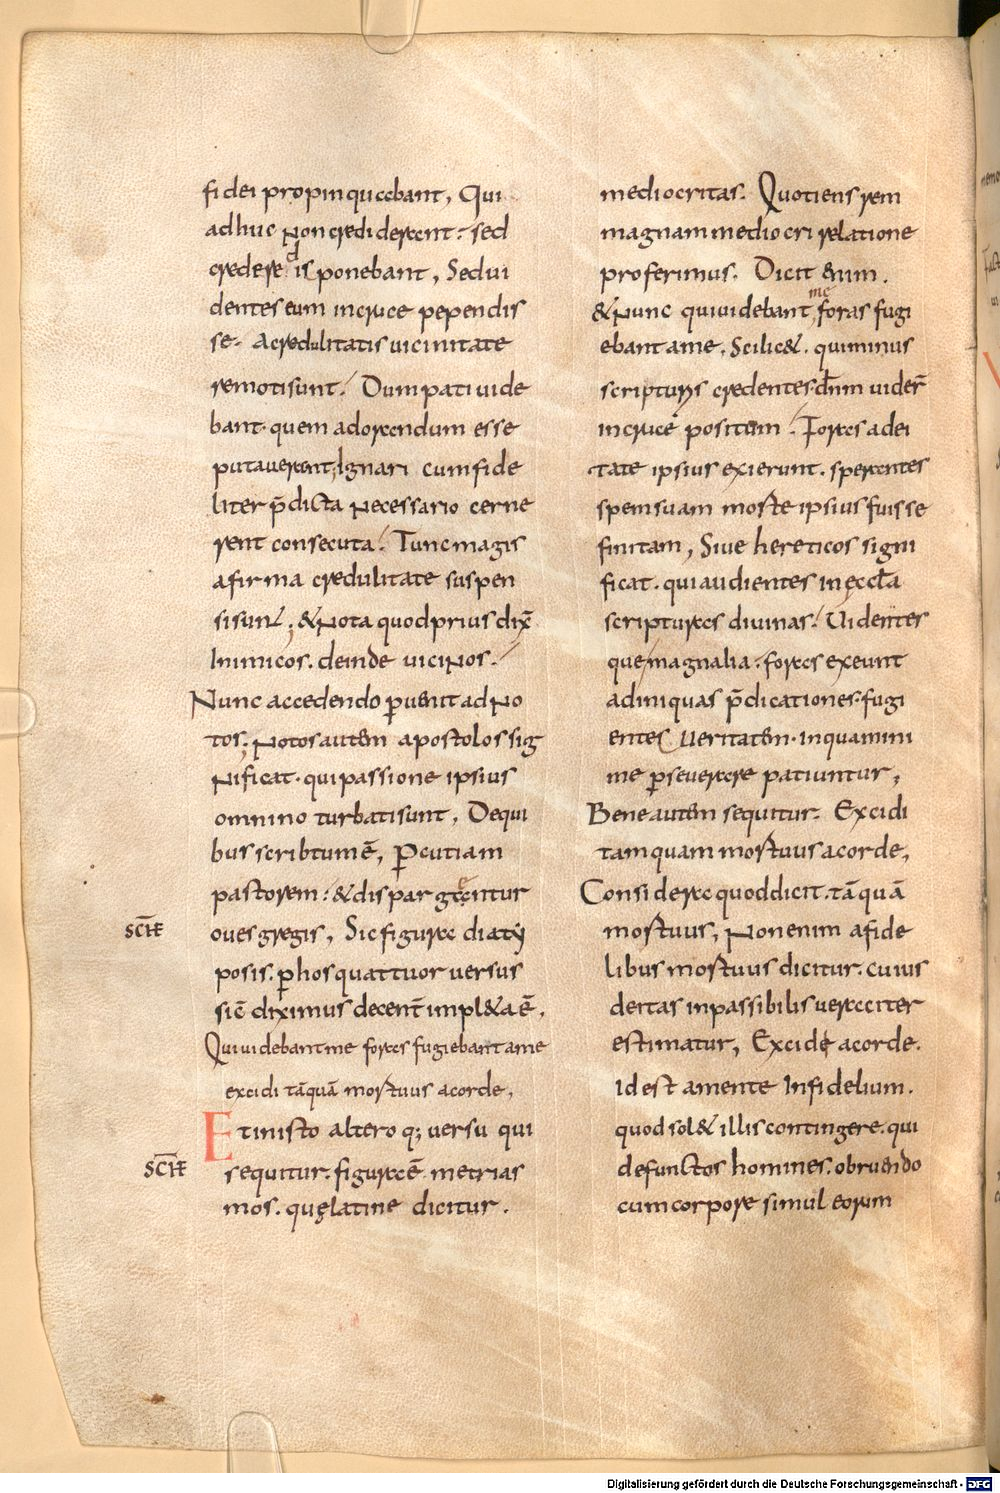 fidei propinquabant, Qui
adhuc non crediderant. sed
credere disponebant, Sed ui
dentes eum in cruce pependis
se. A credulitatis uicinitate
remoti sunt. Dum pati uide
bant. quem adorandum esse
putauerant; Ignari cum fide
liter p̄dicta necessario cerne
rent consecuta. Tunc magis
a firma credulitate suspen
si sunt; & nota quod prius dix̄
Inimicos. deinde uicinos.
Nunc accedendo puenit ad no
tos; Notos autem apostolos sig
nificat. qui passione ipsius
omnino turbati sunt, De qui
bus scribtum ē, Percutiam
pastorem. & dispargentur
oues gregis, Sic figura diaty
posis. p hos quattuor uersus
sic̄ diximus decent̄ impl&a ē,
Qui uidebant me foras fugiebant a me
excidi tāquā mortuus a corde,
Et in isto altero q; uersu qui
sequitur. figura ē. metrias
mos. quę latine dicitur.
mediocritas. Quotiens rem
magnam mediocri relatione
proferimus. Dicit enim.
& nunc qui uidebant me, foras fugi
ebant a me. Scilic&. qui minus
scripturis credentes. dn̄m uider̄
in cruce positum. Foras a dei
tate ipsius exierunt. sperantes
spem suam morte ipsius fuisse
finitam, Siue hereticos signi
ficat. qui audientes in ęccl̄a
scripturas diuinas. Uidentes
que magnalia. foras exeunt
ad iniquas p̄dicationes. fugi
entes ueritatem. in qua mini
me perseuerare patiuntur,
Bene autem sequitur. Excidi
tamquam mortuus a corde,
Considera quod dicit. tāquā
mortuus, Non enim a fide
libus mortuus dicitur. cuius
deitas inpassibilis ueraciter
estimatur, Excide a corde.
id est a mente Infidelium.
quod sol& illis contingere. qui
defunctos homines. obruendo
cum corpore simul eorum
Digitalisierung gefördert durch die Deutsche Forschungsgemeinschaft - DFG